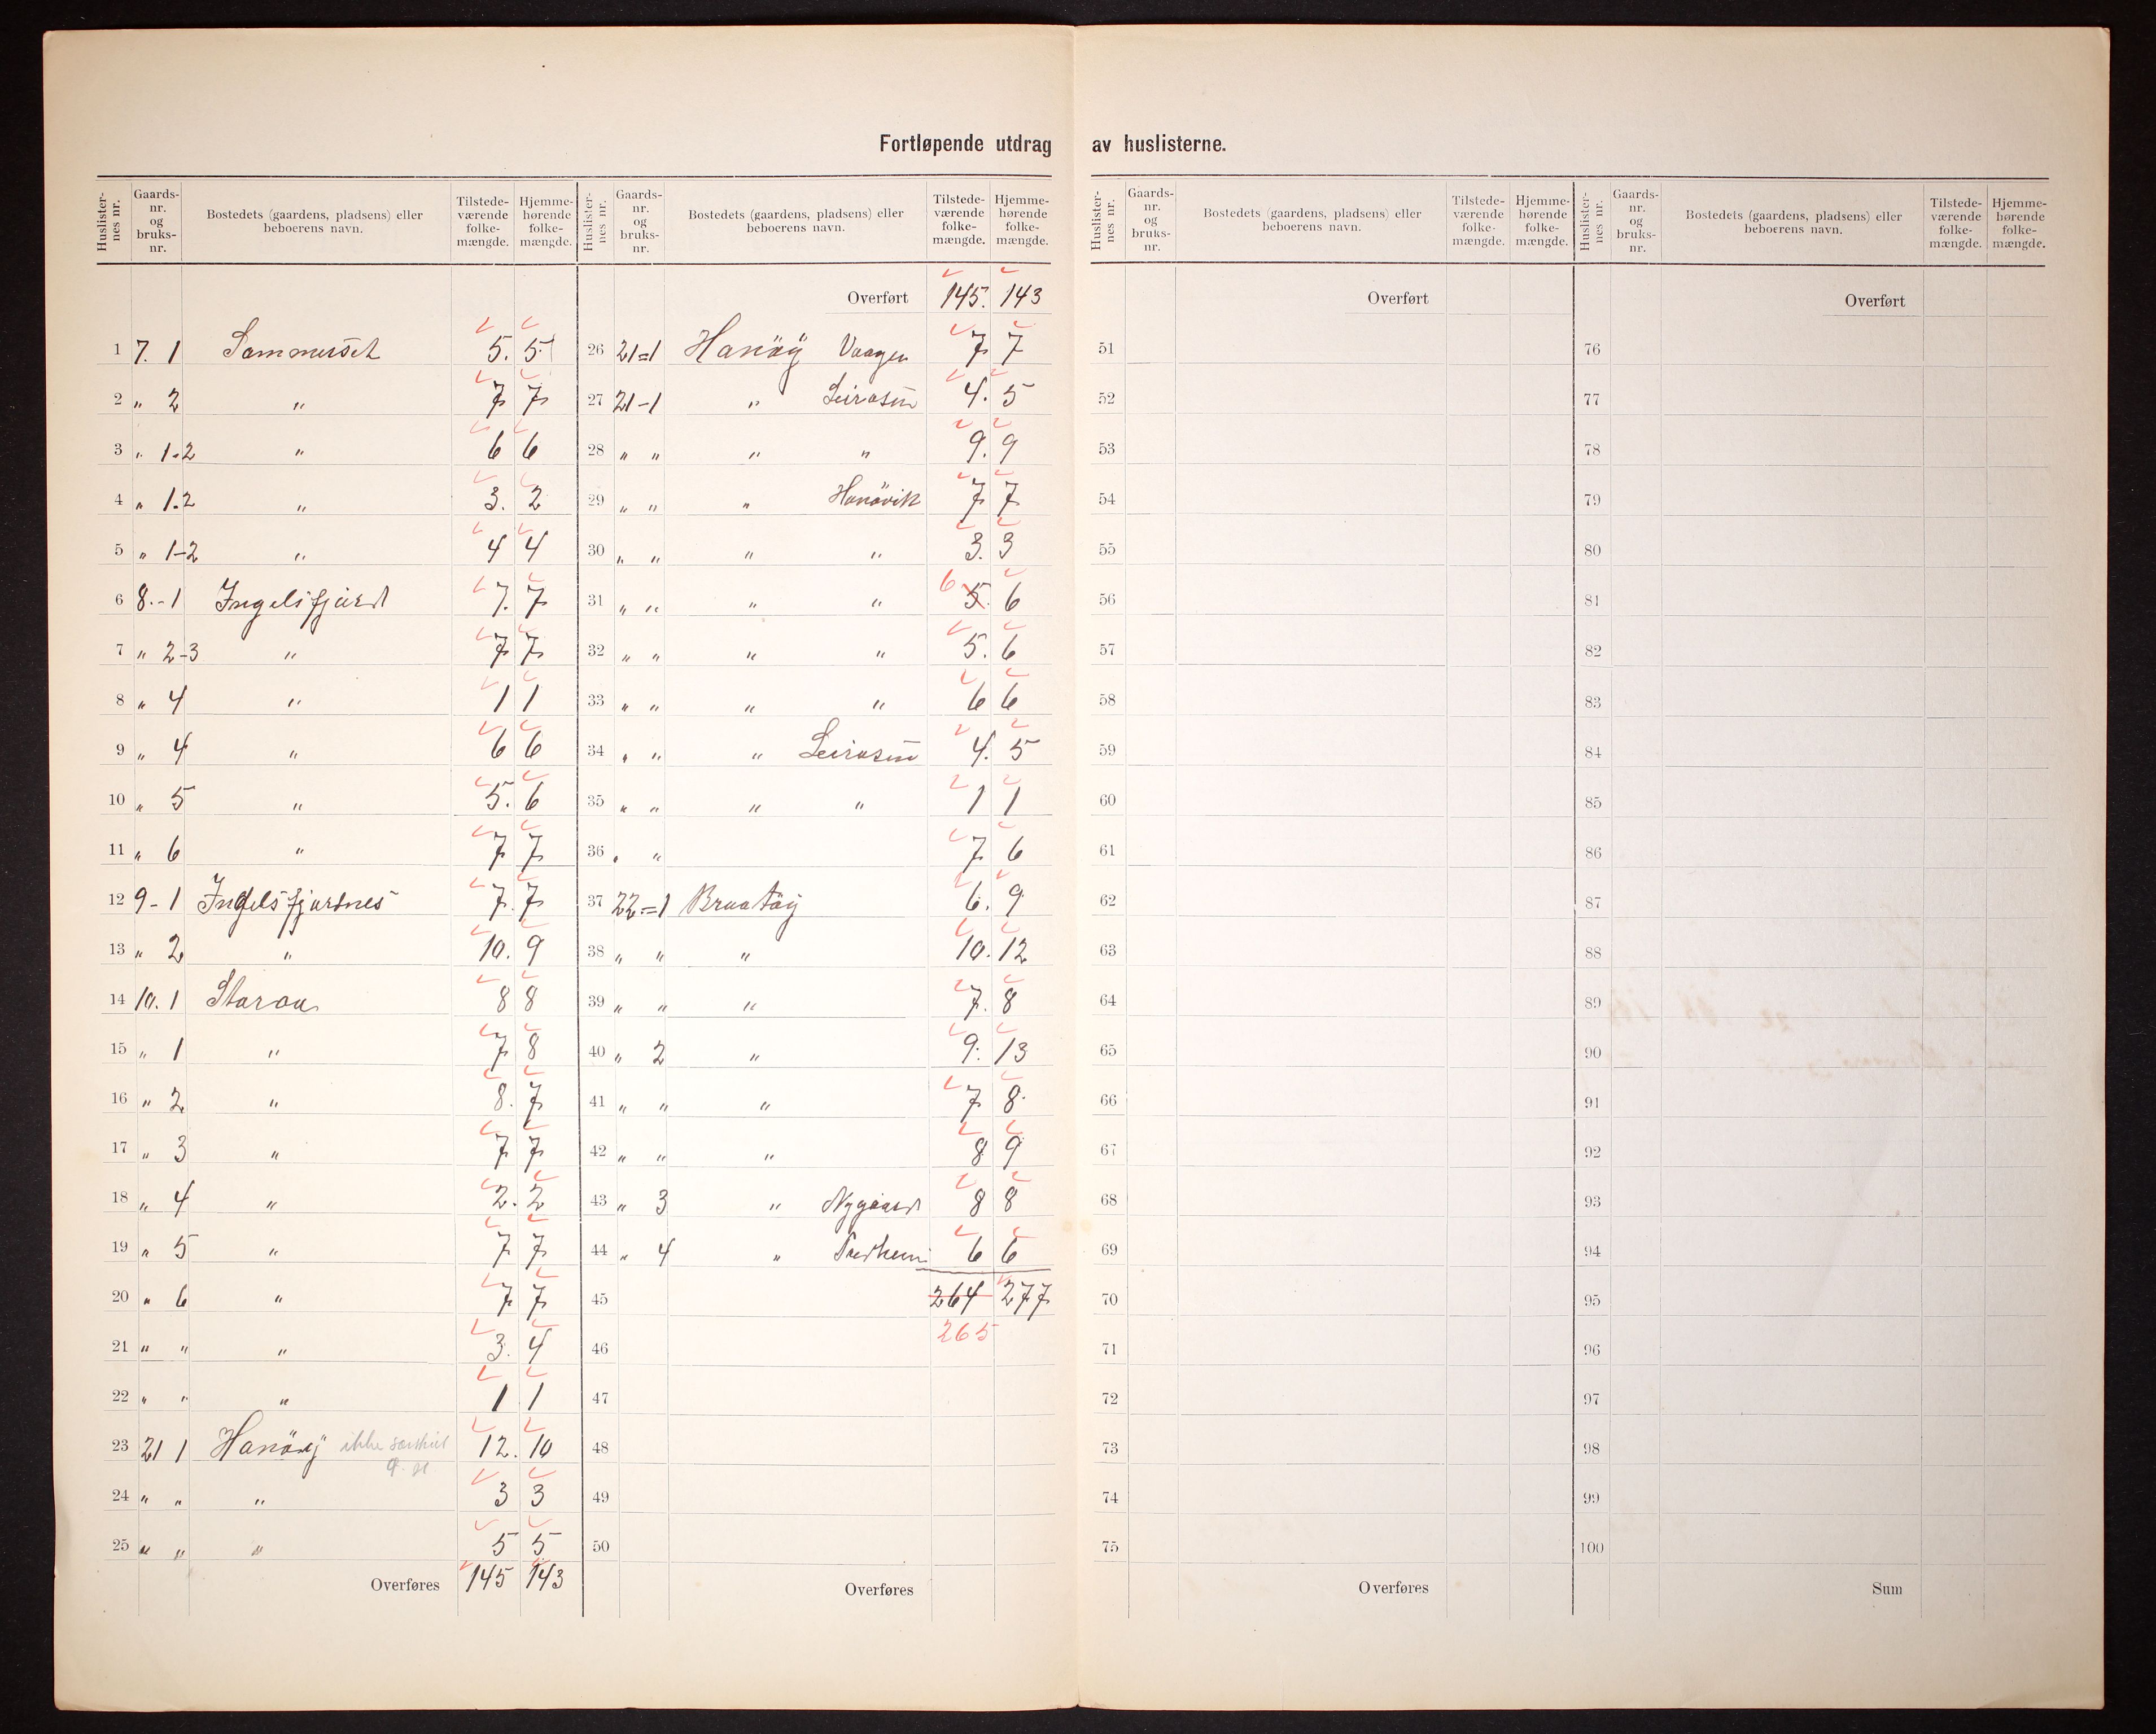 Fortløpende utdrag av huslisterne.
Huslisternes nr. Gaards-nr. og bruks-nr. Bostedets (gaardens, pladsens) eller beboerens navn. Tilstedeværende folkemængde. Hjemmehørende folkemængde.
1 7. 1 Sommerset 5. 5
2 " 2 " 7 7
3 " 1-2 " 6 6
4 " 1.2 " 3. 2
5 " 1-2 " 4 4
6 8.-1 Ingelsfjord 7. 7
7 " 2-3 " 7 7
8 " 4 " 1 1
9 " 4 " 6 6
10 " 5 " 5. 6
11 " 6 " 7 7
12 9-1 Ingelsfjordnes 7. 7
13 " 2 " 10. 9
14 10. 1 8 8
15 " 1 " 7 8
16 " 2 " 8. 7
17 " 3 " 7 7
18 " 4 " 2. 2
19 " 5 " 7 7
20 " 6 " 7 7
21 " " " 3. 4
22 " " " 1 1
23 21 1 Hanöy ikke 12. 10
24 " " " 3 3
25 " " " 5 5
Overføres 145 143
Huslisternes nr. Gaards-nr. og bruks-nr. Bostedets (gaardens, pladsens) eller beboerens navn. Tilstedeværende folkemængde. Hjemmehørende folkemængde.
Overført 145. 143
26 21=1 Hanöy Vaagen 7 7
27 21-1 " Leirosen 4. 5
28 " " " " 9. 9
29 " " " Hanövik 7 7
30 " " " " 3. 3
31 " " " " 6 5. 6
32 " " " " 5. 6
33 " " " " 6 6
34 " " " Leirosen 4. 5
35 " " " " 1 1
36 " " 7 6
37 22=1 Braatöy 6. 9
38 " " " 10. 12
39 " " " 7. 8
40 " 2 " 9. 13
41 " " " 7 8
42 " " " 8 9
43 " 3 " Nygaard 8 8
44 " 4 " 6 6
45 264 277
46 265
47
48
49
50
Overføres
Huslisternes nr. Gaards-nr. og bruks-nr. Bostedets (gaardens, pladsens) eller beboerens navn. Tilstedeværende folkemængde. Hjemmehørende folkemængde.
Overført
51
52
53
54
55
56
57
58
59
60
61
62
63
64
65
66
67
68
69
70
71
72
73
74
75
Overføres
Huslisternes nr. Gaards-nr. og bruks-nr. Bostedets (gaardens, pladsens) eller beboerens navn. Tilstedeværende folkemængde. Hjemmehørende folkemængde.
Overført
76
77
78
79
80
81
82
83
84
85
86
87
88
89
90
91
92
93
94
95
96
97
98
99
100
Sum